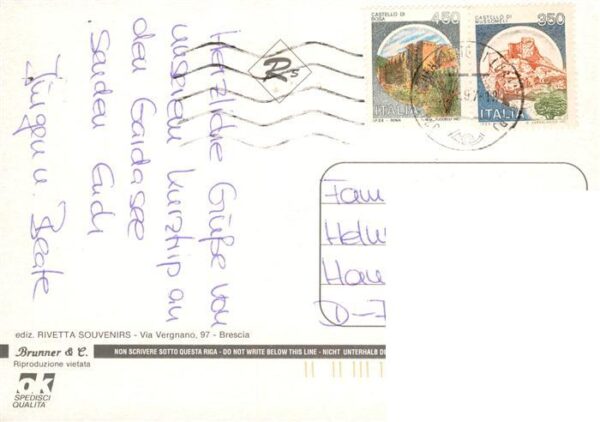 Herzliche Grüße von
unserem Kurztrip an
den Gardasee
senden Euch
Jürgen u. Beate
CASTELLO DI
BOSA
450
ITALIA
CASTELLO DI
MUSSOMELI
350
ITALIA
Fam
Helm
Hau
D-7
ediz. RIVETTA SOUVENIRS - Via Vergnano, 97 - Brescia
Brunner & C.
NON SCRIVERE SOTTO QUESTA RIGA - DO NOT WRITE BELOW THIS LINE - NICHT UNTERHALB DE
Riproduzione vietata
ok
SPEDISCI
QUALITA